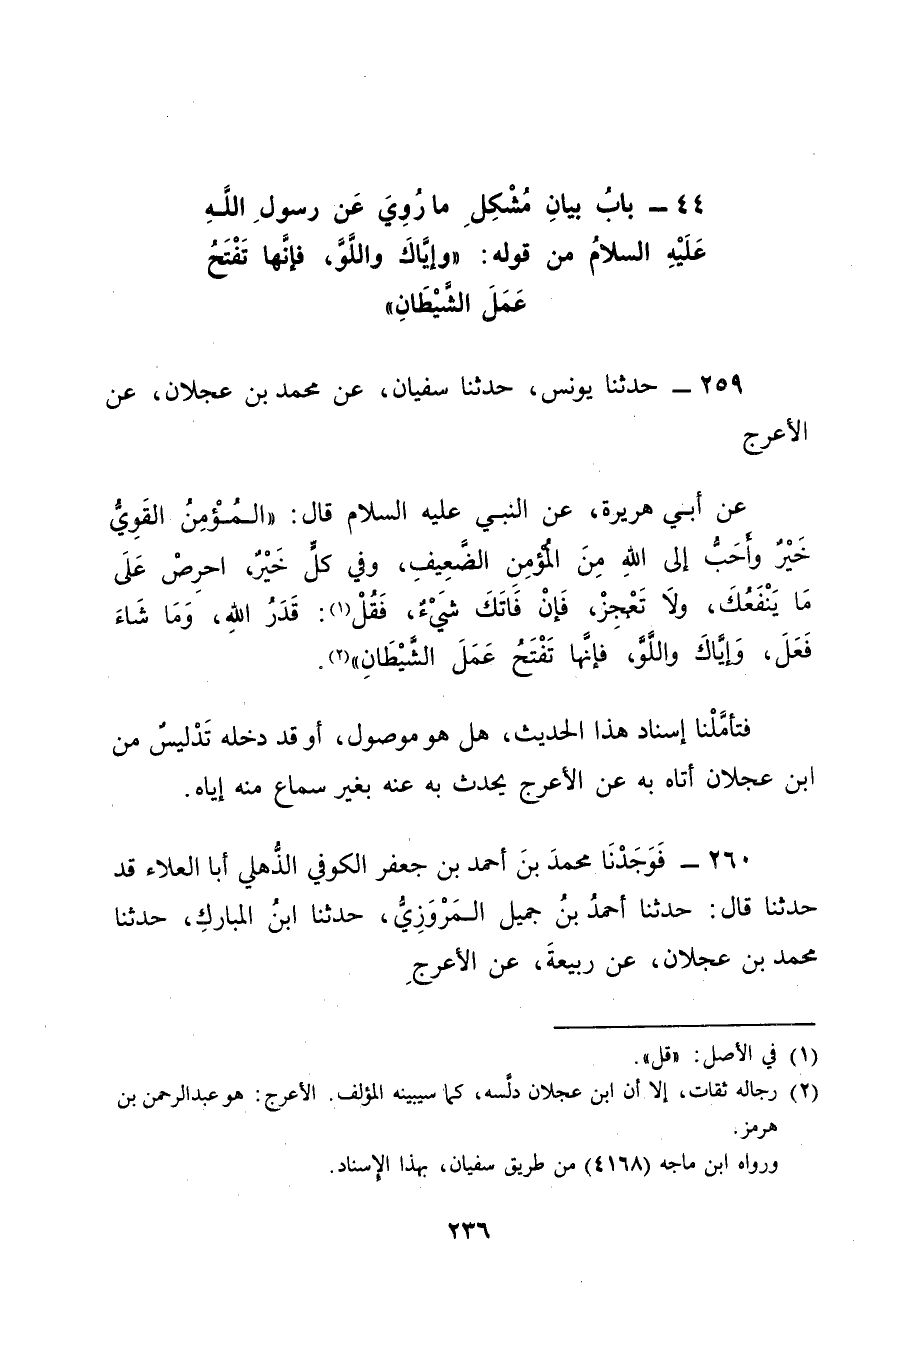 ٤٤ ـ بابُ بيانِ مُشْكِلِ ما رُوِيَ عَن رسولِ اللَّهِ
عَلَيْهِ السلامُ من قوله: «وإيَّاكَ واللَّوَّ، فإنَّها تَفْتَحُ
عَمَلَ الشَّيْطَانِ»
٢٥٩ ـ حدثنا يونس، حدثنا سفيان، عن محمد بن عجلان، عن
الأعرج
عن أبي هريرة، عن النبي عليه السلام قال: «المُؤْمِنُ القَوِيُّ
خَيْرٌ وأَحَبُّ إلى اللهِ مِنَ المُؤْمِن الضَّعِيفِ، وفي كلٍّ خَيْرٌ، احرِصْ عَلَى
مَا يَنْفَعُكَ، ولَا تَعْجِزْ، فَإنْ فَاتَكَ شَيْءٌ، فَقُلْ(١): قَدَرُ اللهِ، وَمَا شَاءَ
فَعَلَ، وَإيَّاكَ واللَّوَّ، فإنَّها تَفْتَحُ عَمَلَ الشَّيْطَانِ»(٢).
فتأمَّلْنا إسناد هذا الحديث، هل هو موصول، أو قد دخله تَدْليسٌ من
ابن عجلان أتاه به عن الأعرج يحدث به عنه بغير سماع منه إياه.
٢٦٠ ـ فَوَجَدْنَا محمدَ بنَ أحمد بن جعفر الكوفي الذُّهلي أبا العلاء قد
حدثنا قال: حدثنا أحمدُ بنُ جميل المَرْوَزِيُّ، حدثنا ابنُ المباركِ، حدثنا
محمد بن عجلان، عن ربيعةَ، عن الأعرجِ
(١) في الأصل: «قل».
(٢) رجاله ثقات، إلا أن ابن عجلان دلَّسه، كما سيبينه المؤلف. الأعرج: هو عبدالرحمن بن
هرمز.
ورواه ابن ماجه (٤١٦٨) من طريق سفيان، بهذا الإسناد.
٢٣٦